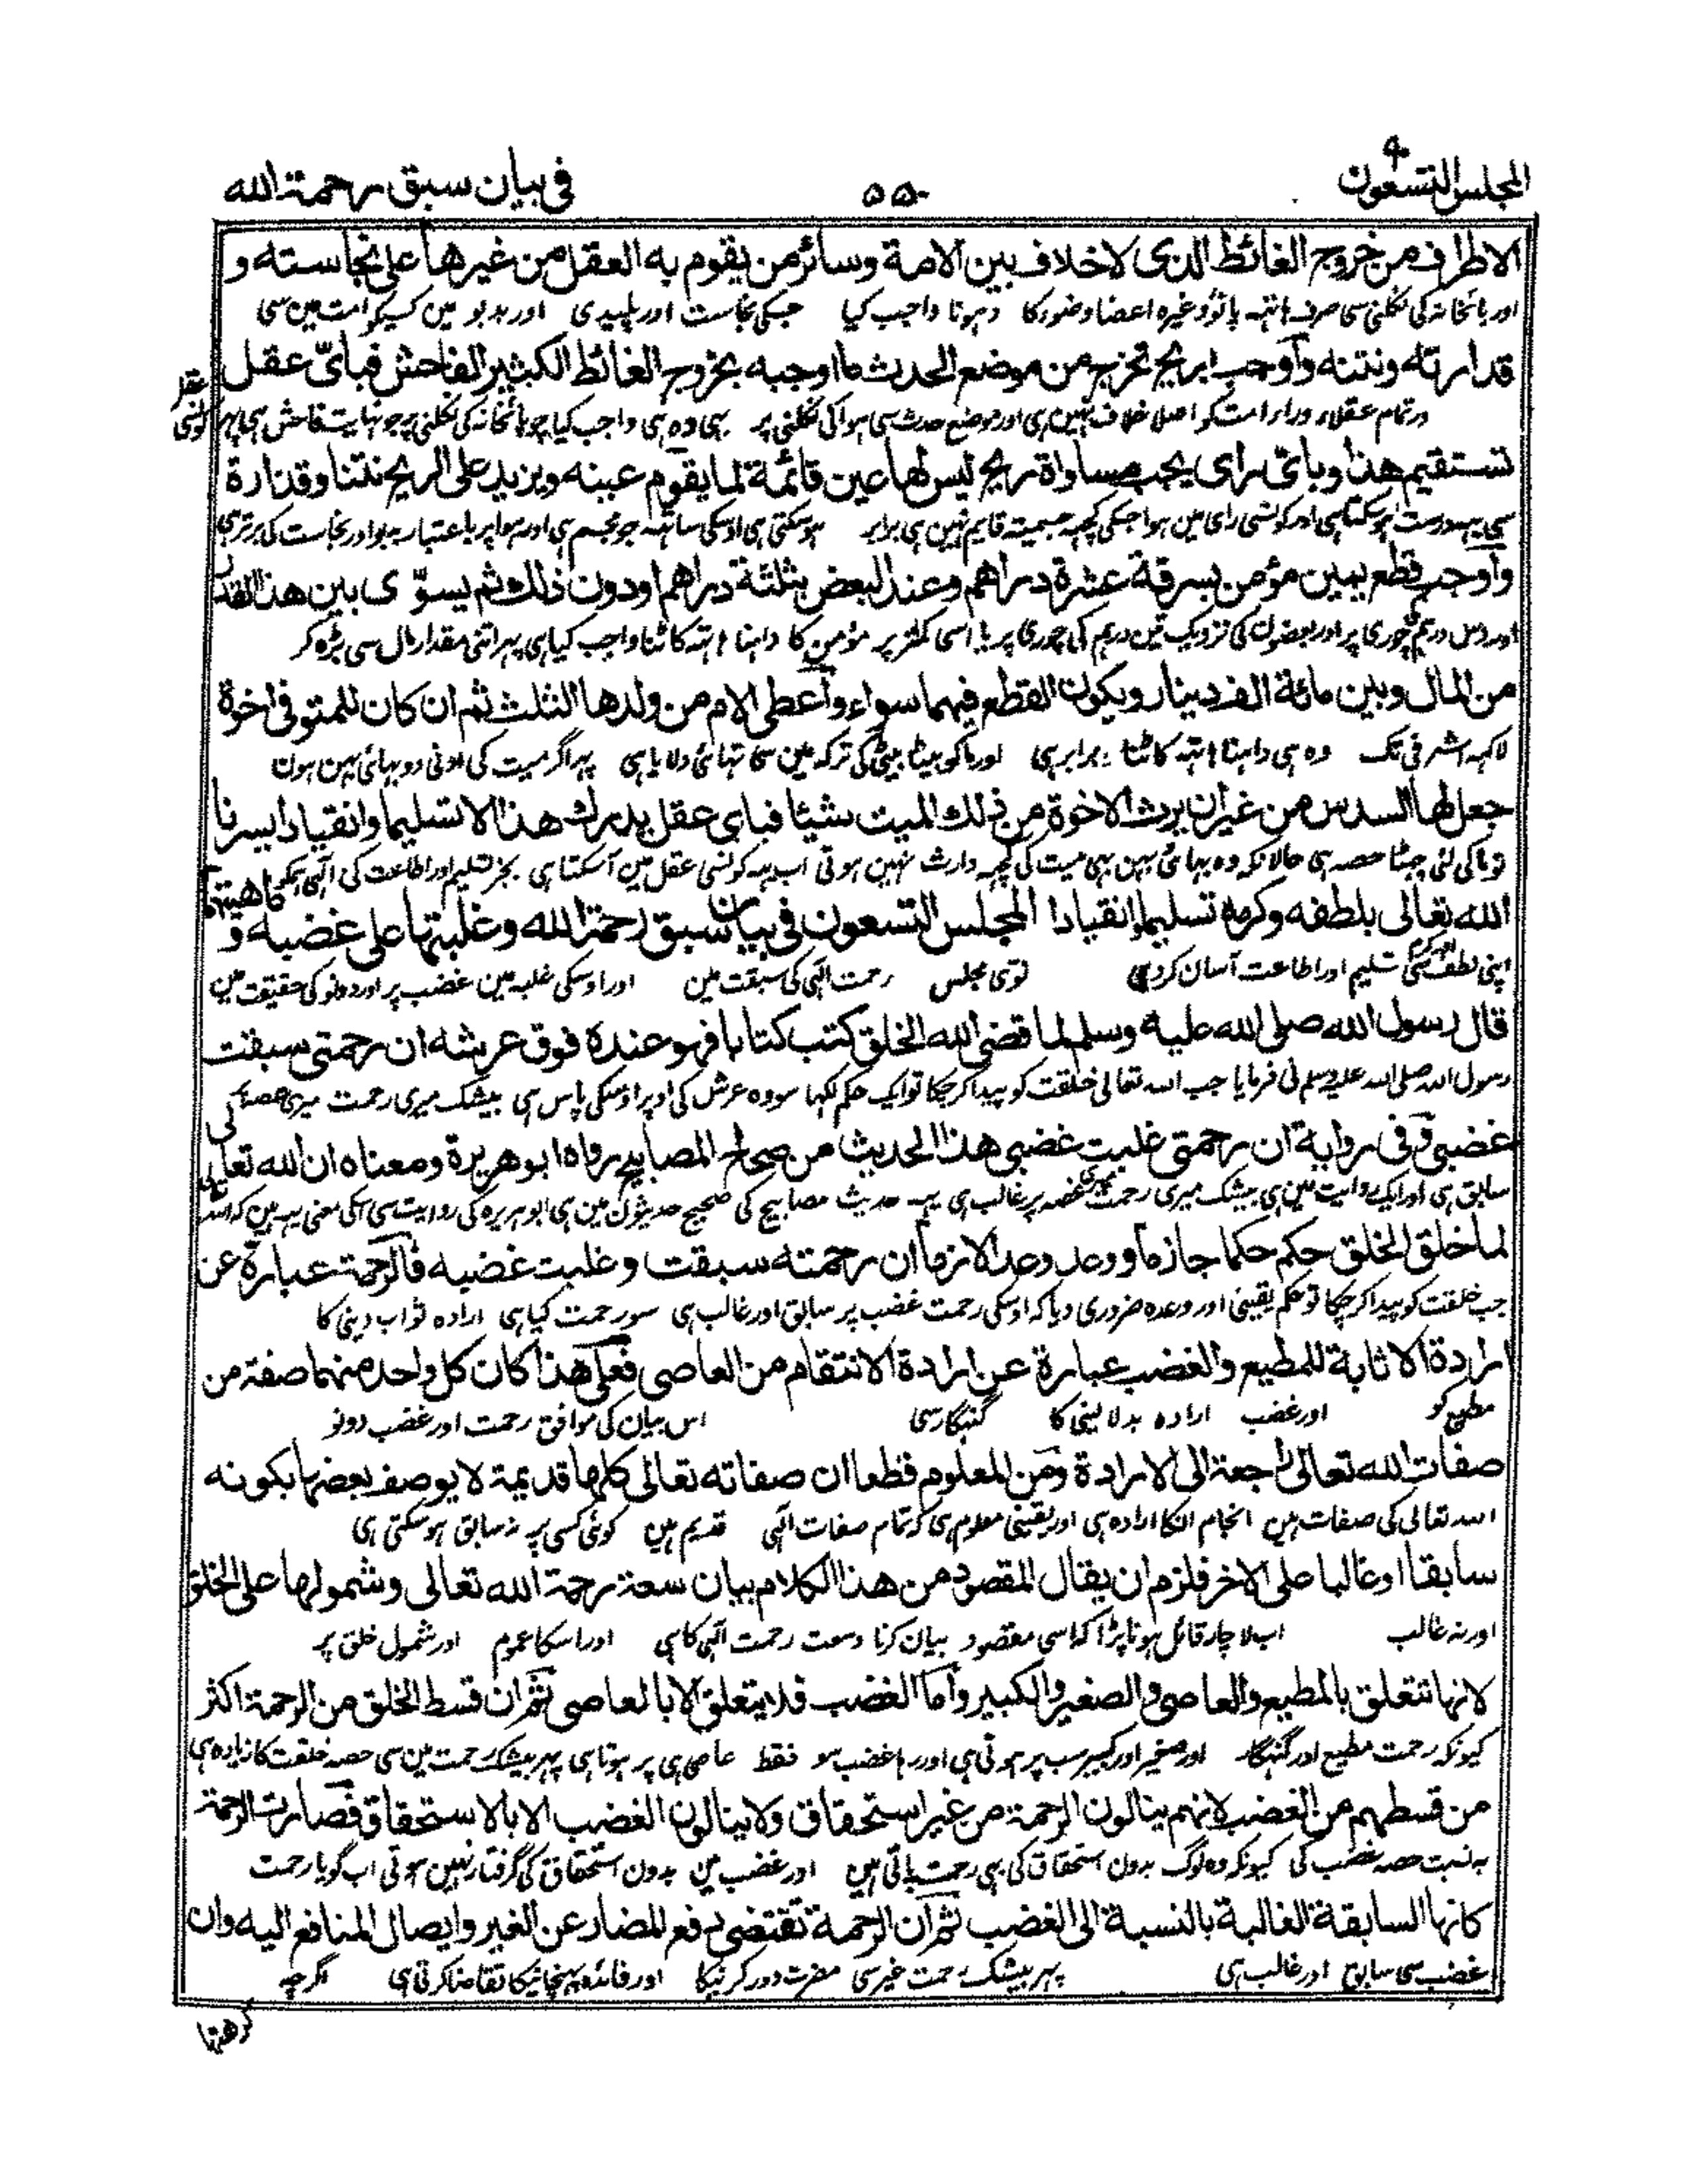 المجلس التسعون
۵۵۰
فی بیان سبق رحمة الله
الاطراف من خروج الغائط الذی لا خلاف بین الامة وسائر من یقوم به العقل من غیرها علی نجاسته و
اور پائخانہ کی نکلنی سی صرف ہاتہہ پانؤ وغیرہ اعضا وضوء کا دہونا واجب کیا جسکی نجاست اور پلیدی اور بدبو مین کسیکو امت مین سی
قذارته ونتنه وأوجب بریح تخرج من موضع الحدث ما اوجبه بخروج الغائط الکثیر الفاحش فبأیّ عقل
اور تمام عقلاء امت کو اصلا خلاف نہین ہی اور موضع حدث سی ہوا کی نکلنی پر بہی وہ ہی واجب کیا جو پائخانہ کی نکلنی پر جو نہایت فاحش ہی پہر کونسی عقل
تستقیم هذا وبای رای یجب مساواة ریح لیس لها عین قائمة لما یقوم عینه ویزید علی الریح نتنا وقذارة
سی یہہ درست ہوسکتا ہی اور کونسی رای مین ہوا جسکی کچہہ جسمیت قایم نہین ہی برابر ہوسکتی ہی اوسکی ساتہہ جو مجسم ہی اور ہوا پر باعتبار بدبو اور نجاست کی برتر ہی
وأوجب قطع یمین مؤمن بسرقة عشرة دراهم وعند البعض بثلثة دراهم او دون ذلك وثم یسوّی بین هذا القدر
اور دس درہم کی چوری پر اور بعضون کی نزدیک تین درہم کی چوری پر یا اسی کمتر پر مؤمن کا داہنا ہاتہہ کاٹنا واجب کیا ہی پہر اتنی مقدار مال سی بڑہ کر
من المال وبین مائة الف دینار ویکون القطع فیهما سواء وأعطی الام من ولدها الثلث ثم ان کان للمتوفی اخوة
لاکہہ اشرفی تک وہ ہی داہنا ہاتہہ کاٹنا برابر ہی اور ماکو بیٹا بیٹی کی ترکہ مین سی تہائی دلایا ہی پہر اگر میت کی ادنی دو بہائی بہن ہون
جعل لها السدس من غیر ان یرث الاخوة من ذلك المیت شیئا فبای عقل یدرك هذا الا تسلیما وانقیادا یسرنا
تو ماکی لئی چہٹا حصہ ہی حالانکہ وہ بہائی بہن بہی میت کی کچہہ وارث نہین ہوتی اب یہہ کونسی عقل مین آسکتا ہی بجز تسلیم اور اطاعت کی الٰہی ہمکو
الله تعالی بلطفه وکرمه تسلیما وانقیادا المجلس التسعون فی بیان سبق رحمة الله وغلبتها علی غضبه و ماهیتهما
اپنی لطف وکرم سی تسلیم اور اطاعت آسان کردی نوی مجلس رحمت الٰہی کی سبقت مین اور اوسکی غلبہ مین غضب پر اور دونو کی حقیقت مین
قال رسول الله صلی الله علیه وسلم لما قضی الله الخلق کتب کتابا فهو عنده فوق عرشه ان رحمتی سبقت
رسول اللہ صلی اللہ علیہ وسلم نی فرمایا جب اللہ تعالی خلقت کو پیدا کرچکا تو ایک حکم لکہا سو وہ عرش کی اوپر اوسکی پاس ہی بیشک میری رحمت میری غصہ کی
غضبی وفی روایة ان رحمتی غلبت غضبی هذا الحدیث من صحاح المصابیح رواه ابو هریرة ومعناه ان الله تعالی
سابق ہی اور ایک روایت مین ہی بیشک میری رحمت میری غصہ پر غالب ہی یہہ حدیث مصابیح کی صحیح حدیثون مین ہی ابو ہریرہ کی روایت سی اسکی معنی یہہ ہین کہ اللہ تعالی
لما خلق الخلق حکم حکما جازما ووعد وعدا لازما ان رحمته سبقت وغلبت غضبه فالرحمة عبارة عن
جب خلقت کو پیدا کرچکا تو حکم یقینی اور وعدہ ضروری دیا کہ اوسکی رحمت غضب پر سابق اور غالب ہی سو رحمت کیا ہی ارادہ ثواب دینی کا
ارادة الاثابة للمطیع والغضب عبارة عن ارادة الانتقام من العاصی فعلی هذا کان کل واحد منهما صفة من
مطیع کو اور غضب ارادہ بدلا لینی کا گنہگار سی اس بیان کی موافق رحمت اور غضب دونو
صفات الله تعالی راجعة الی الارادة ومن المعلوم قطعا ان صفاته تعالی کلها قدیمة لا یوصف بعضها بکونه
اللہ تعالی کی صفات ہین انجام انکا ارادہ ہی اور یقینی معلوم ہی کہ تمام صفات الٰہی قدیم ہین کوئی کسی پر نہ سابق ہوسکتی ہی
سابقا او غالبا علی الاخر فلزم ان یقال المقصود من هذا الکلام بیان سعة رحمة الله تعالی وشمولها علی الخلق
اور نہ غالب اب لاچار قائل ہونا پڑا کہ اسی مقصود بیان کرنا وسعت رحمت الٰہی کا ہی اور اسکا عموم اور شمول خلق پر
لانها تتعلق بالمطیع والعاصی والصغیر والکبیر وأما الغضب فلا یتعلق الا بالعاصی ثم ان قسط الخلق من الرحمة اکثر
کیونکہ رحمت مطیع اور گنہگار اور صغیر اور کبیر سب پر ہوتی ہی اور رہا غضب سو فقط عاصی ہی پر ہوتا ہی پہر بیشک رحمت مین سی حصہ خلقت کا زیادہ ہی
من قسطهم من الغضب لانهم ینالون الرحمة من غیر استحقاق ولا ینالون الغضب الا بالاستحقاق فصارت الرحمة
بہ نسبت حصہ غضب کی کیونکہ وہ لوگ بدون استحقاق کی بہی رحمت پاتی ہین اور غضب مین بدون استحقاق کی گرفتار نہین ہوتی اب گویا رحمت
کانها السابقة الغالبة بالنسبة الی الغضب ثم ان الرحمة تقتضی دفع المضار عن الغیر وایصال المنافع الیه وان
غضب سی سابق اور غالب ہی پہر بیشک رحمت غیر سی مضرت دور کرنیکا اور فائدہ پہنچانیکا تقاضا کرتی ہی اگرچہ